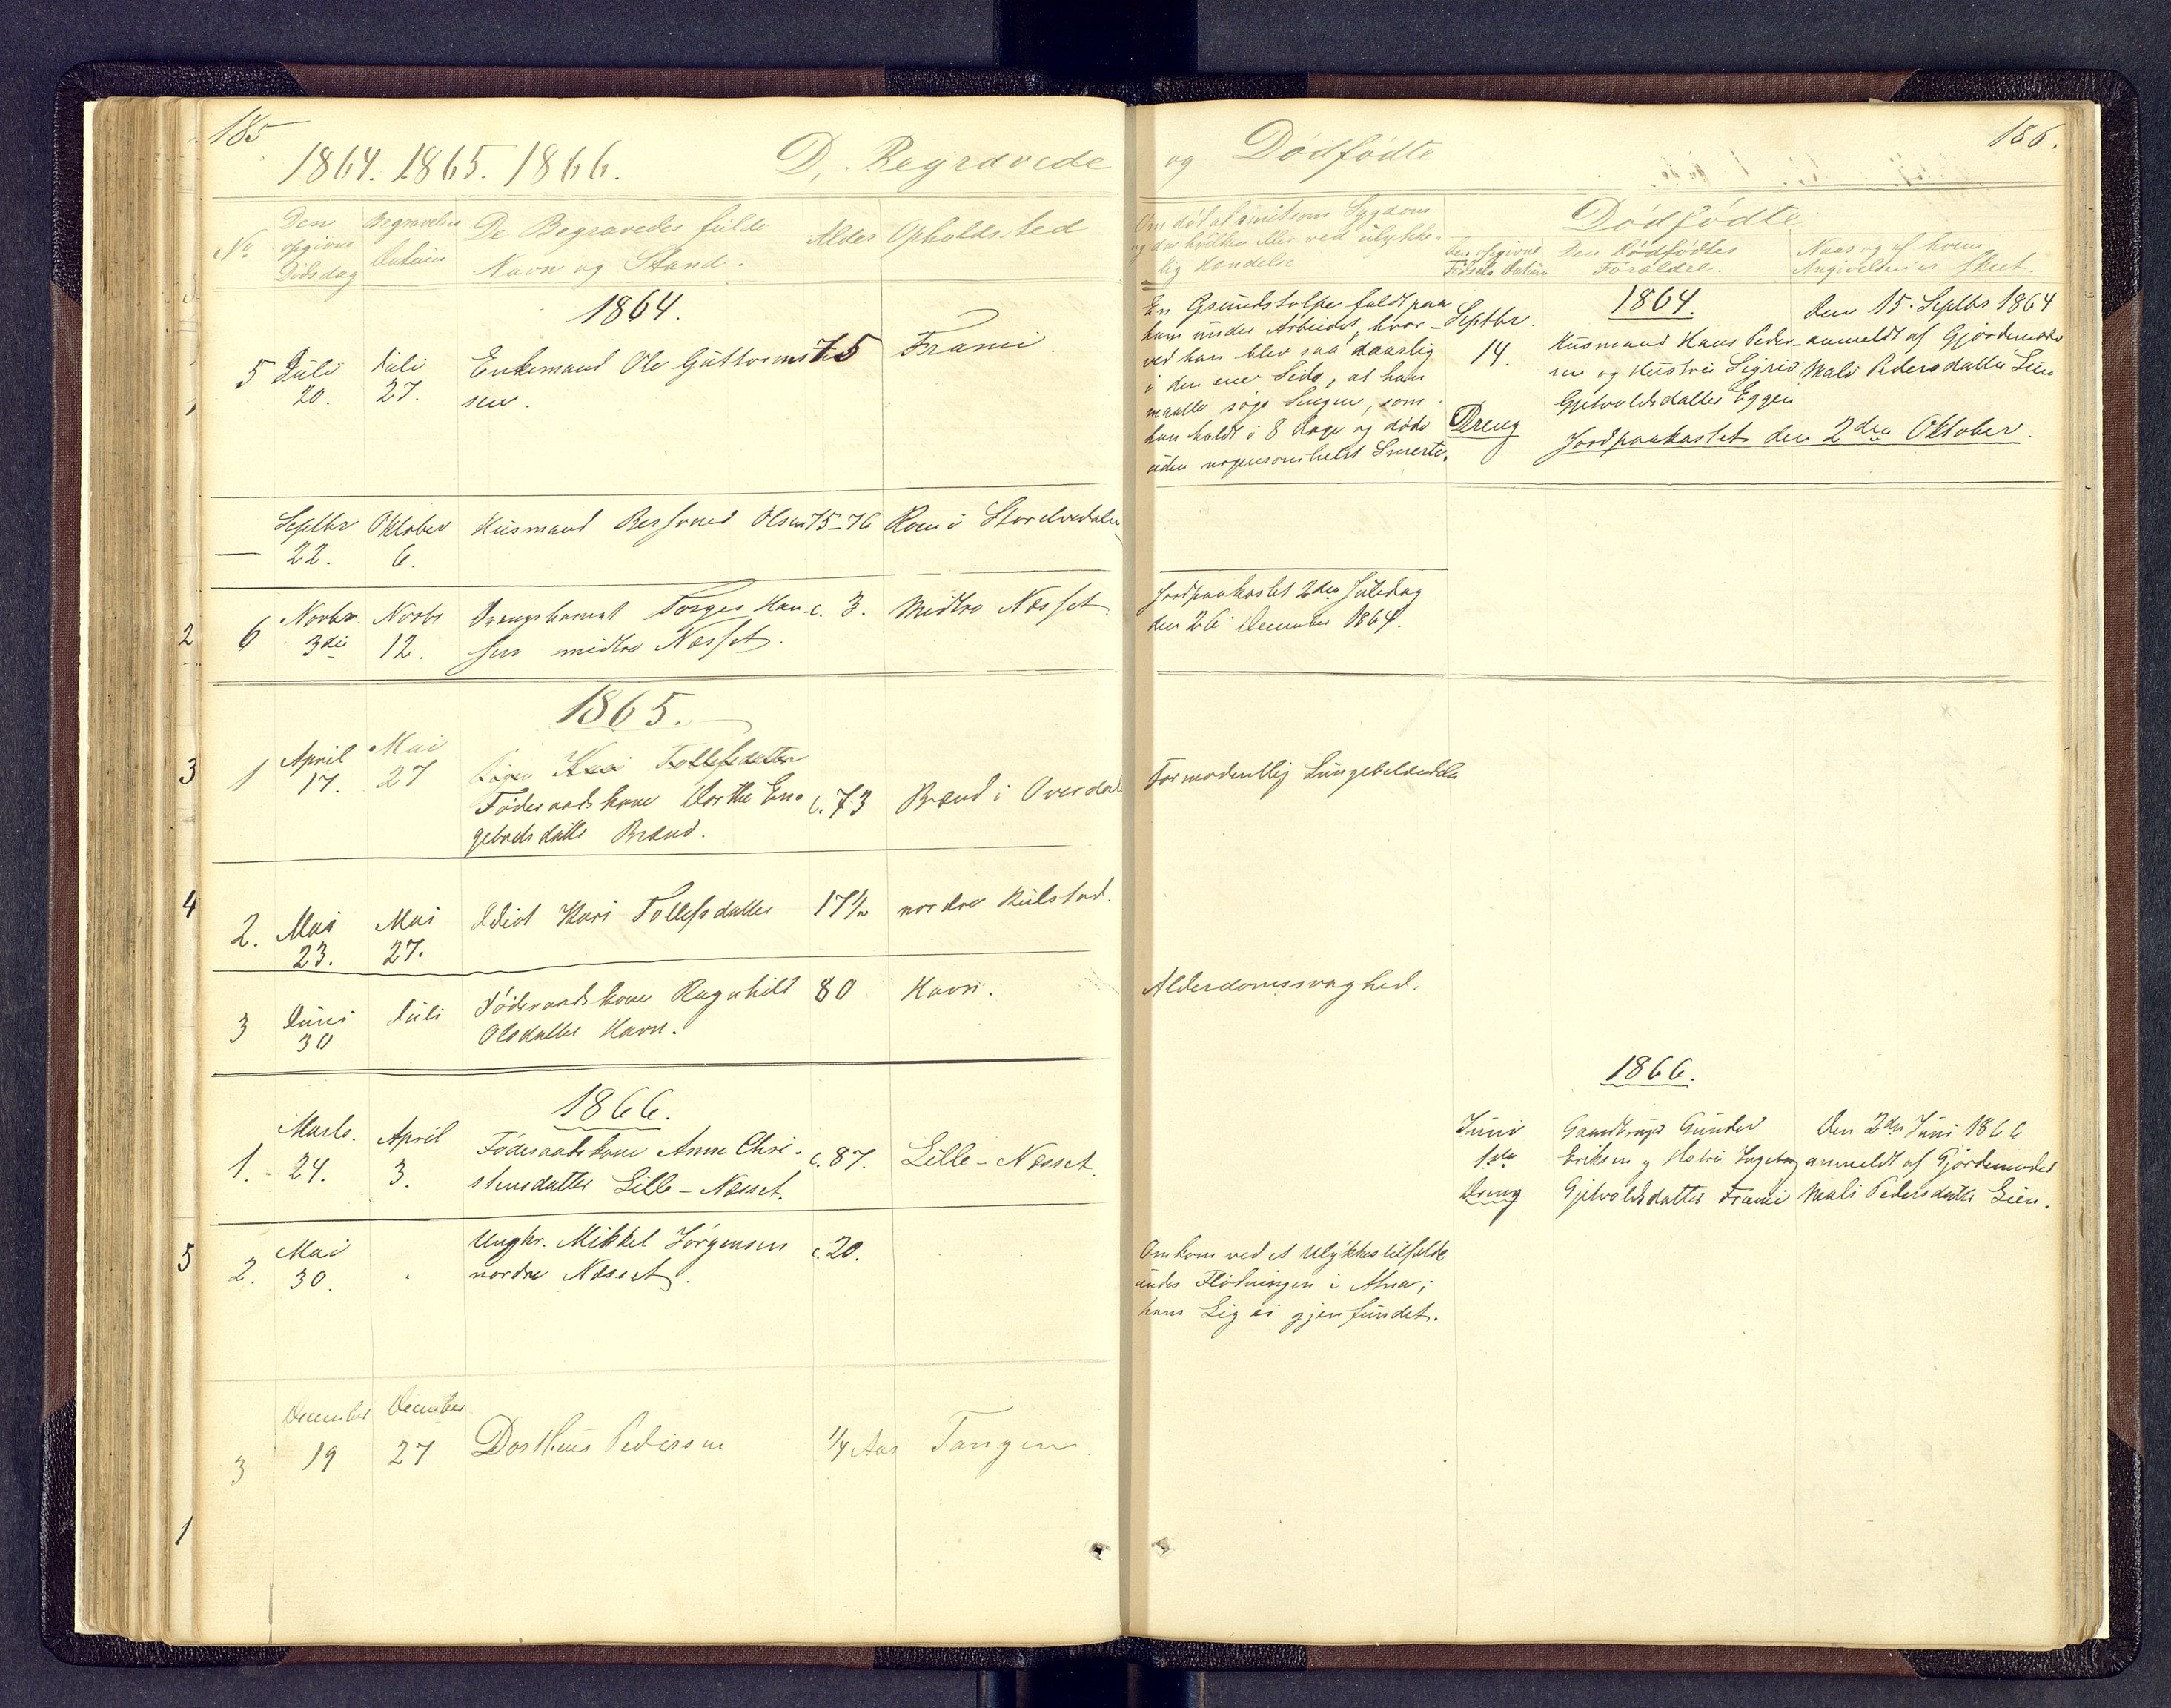 185
1864. 1865. 1866.
D, Begravede
No
Den
opgivne
Dødsdag
Begravelses
Datum
De Begravedes fulde
Navn og Stand.
Alder
Opholdssted
1864.
5
Juli
20.
Juli
27.
Enkemand Ole Guttorms-
sen.
75
Frami.
—
Septbr
22.
Oktober
6.
Husmand Olsen
75-76
Roen i Storelvedalen
6
Novbr.
3die
Novbr
12.
Drengebarnet Torger Han-
sen midtre Næsset.
c. 3.
Midtre Næsset.
1865.
1
April
17.
Mai
27
Kari Tollefsdatter
Føderaadskone Dorthe En-
gebretsdatter Brænd.
c. 73
Brænd i Øverdal
2.
Mai
23.
Mai
27.
Idiot Kari Tollefsdatter
17½
nordre Kulstad.
3
Juni
30
Juli
Føderaadskone Ragnhild
Olsdatter Havn.
80
Havn.
1866.
1.
Marts.
24.
April
3.
Føderaadskone Anne Chri-
stensdatter Lille-Næsset.
c. 87.
Lille-Næsset.
2.
Mai
30.
Ungkr. Mikkel Jörgensen
nordre Næsset.
c. 20.
3
December
19
December
27
Dortheus Pedersen
1/4 Aar
Tangen
2
3
4
5
1
186.
og Dödfödte
Om död af smitsom Sygdom
og da hvilken eller ved ulykke-
lig Hændelse
Dödfödte
Den opgivne
Födsels Datum
Den Dödfödtes
Foræeldre.
Naar og af hvem
Angivelsen er skeet.
En Grundstolpe faldt paa
ham under Arbeidet, hvor-
ved han blev saa daarlig
i den ene Side, at han
maatte söge Sengen, som
han holdt i 8 Dage og döde
uden nogensomhelst Smerte.
Septbr.
14.
Dreng
1864.
Husmand Hans Peder-
sen og Hustru Sigrid
Gjetvoldsdatter Eggen
den 15. Septbr 1864
anmeldt af Gjordemoder
Mali Pedersdatter Lien
Jordpaakastet den 2den Oktober.
Jordpaakastet 2den Juledag
den 26 December 1864.
Formodentlig Lungebetændelse
Alderdomssvaghed.
1866.
Juni
1ste
Dreng
Gaardbruger Gunder
Eriksen og Hustru Ingeborg
Gjetvoldsdatter Frami
Den 2den Juni 1866
anmeldt af Gjordemoder
Mali Pedersdatter Lien.
Omkom ved et Ulykkestilfælde
under Flödningen i Atna;
hans Lig ei gjenfundet.